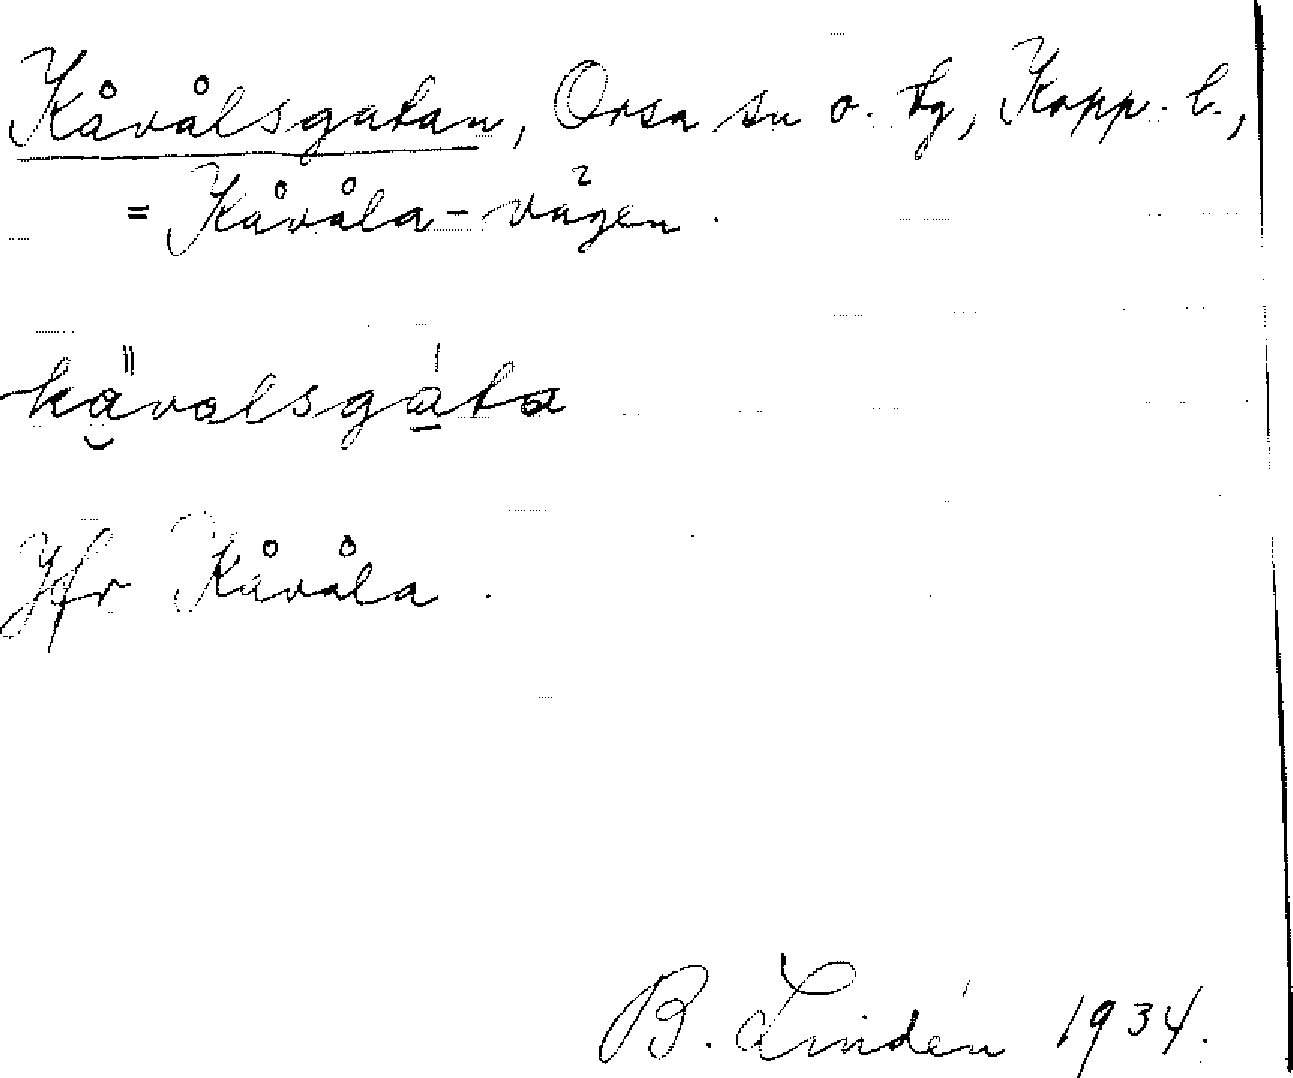 Kåvålsgatan, Orsa sn o. tg, Kopp. l.,
= Kåvåla-vägen.
kävalsgáta
Jfr Kåvåla.
B. Lindén 1934.